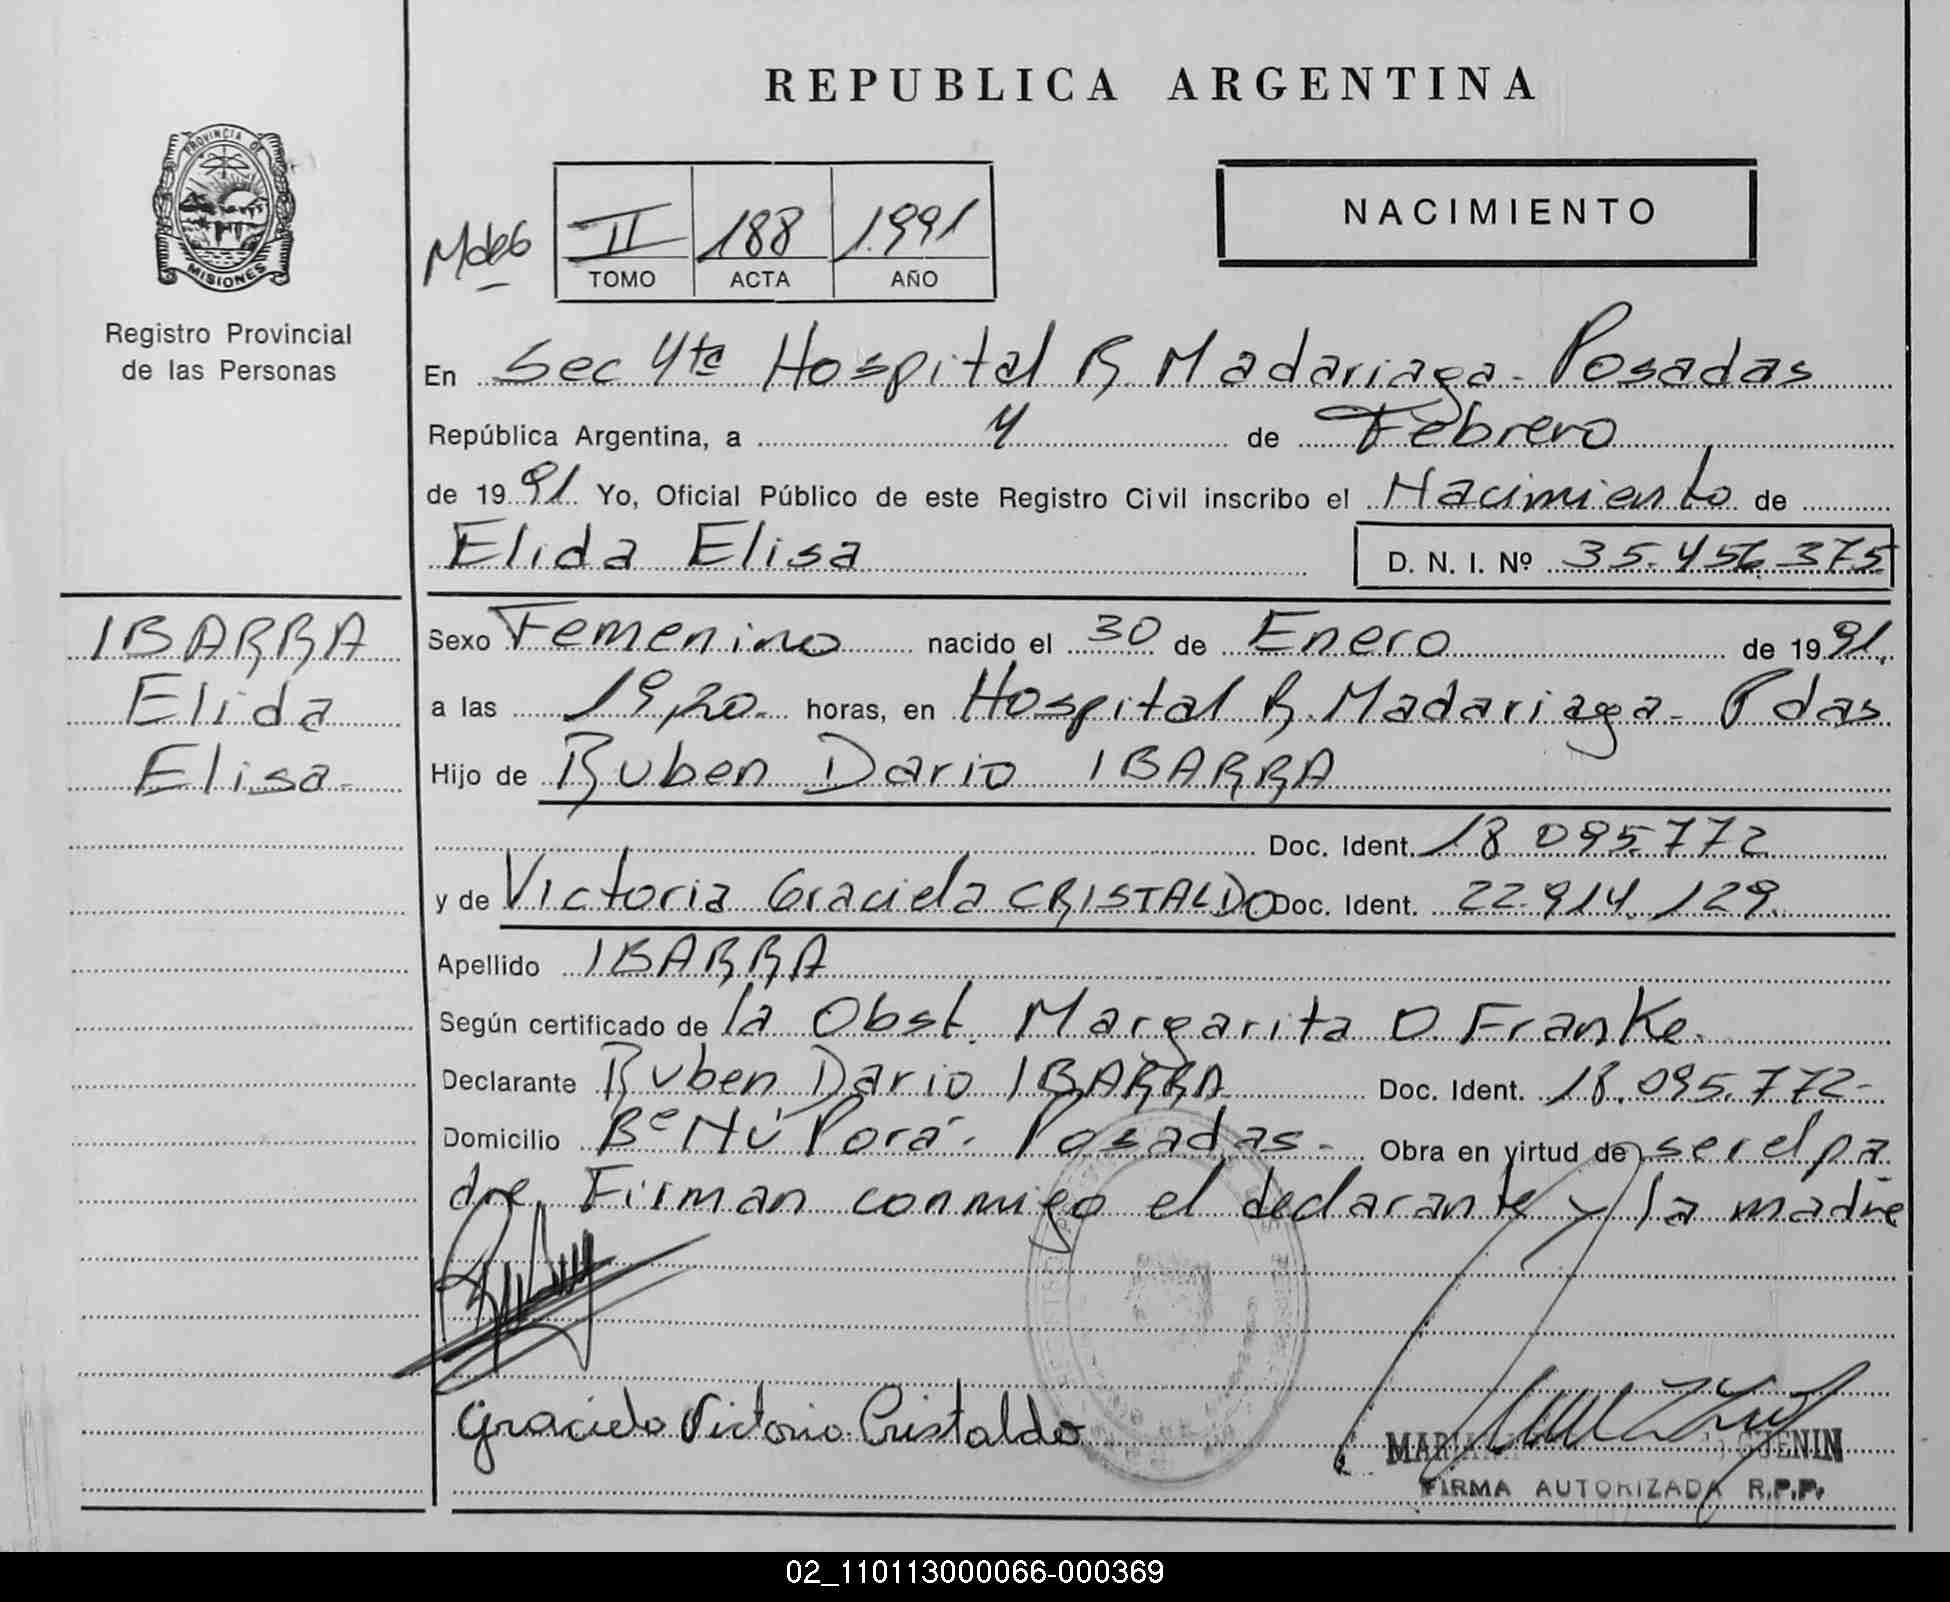 REPUBLICA ARGENTINA
PROVINCIA DE
MISIONES
Registro Provincial
de las Personas
II 188 1.991
TOMO ACTA AÑO
NACIMIENTO
En Sec 4ta Hospital R. Madariaga - Posadas
República Argentina, a 4 de Febrero
de 1991 Yo, Oficial Público de este Registro Civil inscribo el Nacimiento de
Elida Elisa D. N. I. Nº 35.456.375
IBARRA
Elida
Elisa-
Sexo Femenino nacido el 30 de Enero de 1991.
a las 19,20- horas, en Hospital R. Madariaga - Pdas
Hijo de Ruben Dario IBARRA
Doc. Ident. 18.095.772
y de Victoria Graciela CRISTALDO Doc. Ident. 22.914.129.
Apellido IBARRA
Según certificado de la Obst. Margarita D. Franke.
Declarante Ruben Dario IBARRA Doc. Ident. 18.095.772-
Domicilio Bº Ñú Porá - Posadas - Obra en virtud de ser el pa
dre. Firman conmigo el declarante y la madre
Graciela Victoria Cristaldo
FIRMA AUTORIZADA R.P.P.
02_110113000066-000369